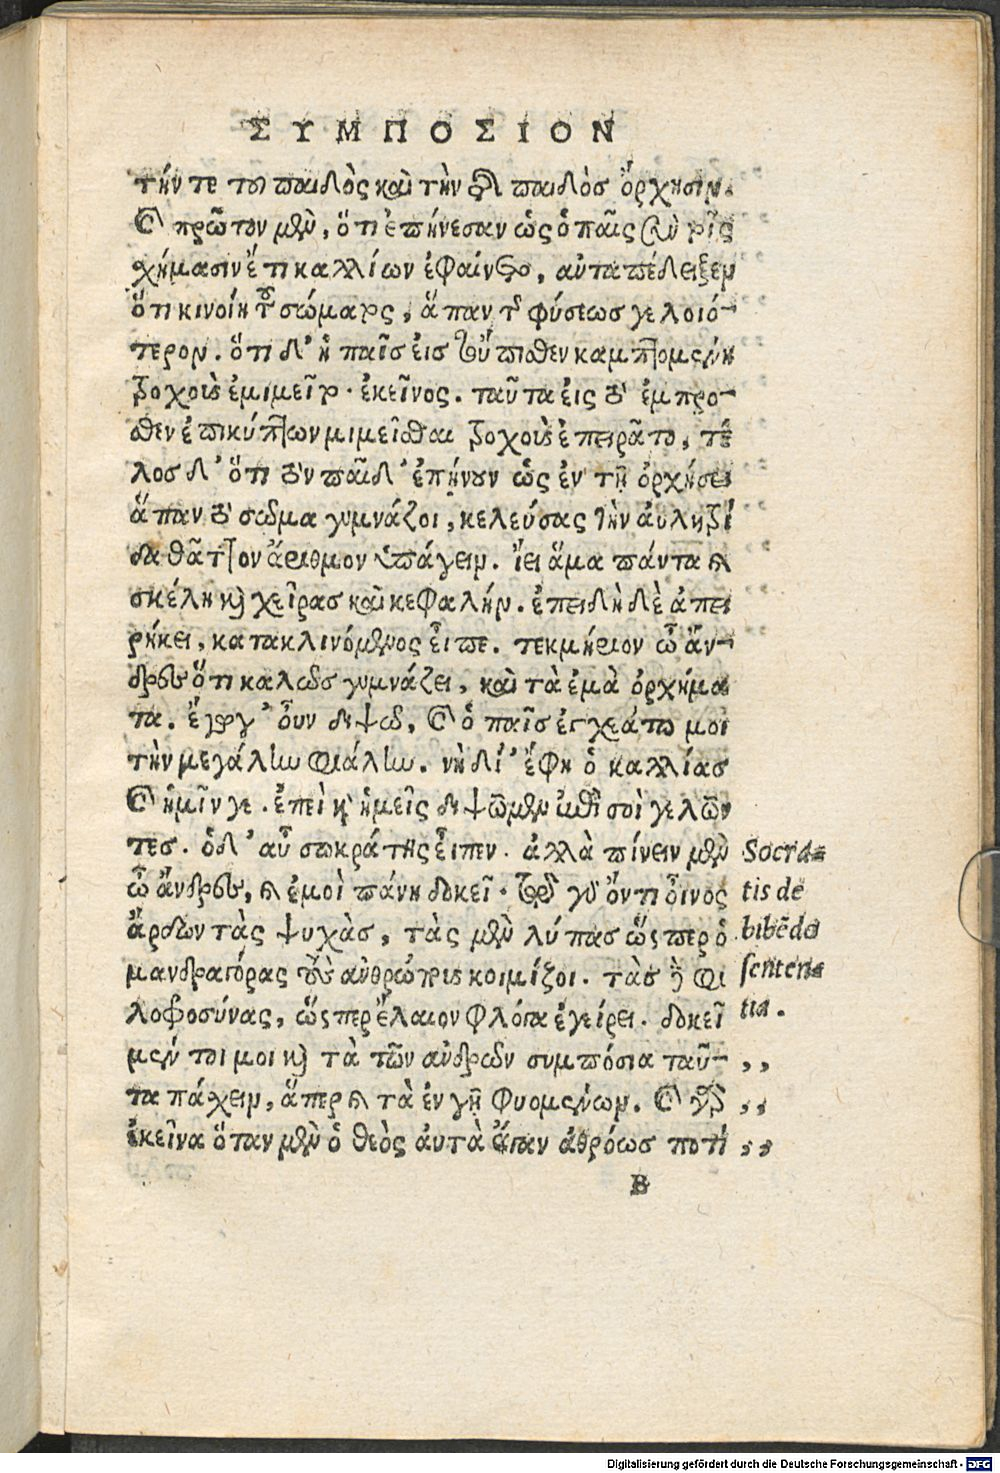 ΣΥΜΠΟΣΙΟΝ
τήν τε του παιδὸς καὶ τὴν τῆς παιδὸσ ὄρχησιν.
καὶ πρῶτον μὲν, ὅτι ἐπήνεσαν ὡς ὁ παῖς σὺν τοῖς
χήμασιν ἔτι καλλίων ἐφαίνετο, αὐταπέδειξεν
ὅτι κινοίη τοῦ σώματος, ἅπαν τῆς φύσεωσ γελοιό-
τερον. ὅτι δ' ἡ παῖσ εἰσ τοὔπισθεν καμπτομένη
τροχοὺς ἐμιμεῖτο. ἐκεῖνος. ταῦτα εἰς τὸ ἐμπρο-
σθεν ἐπικύπτων μιμεῖσθαι τροχοὺς ἐπειρᾶτο, τέ
λοσ δ' ὅτι τὸν παῖδ' ἐπήνουν ὡς ἐν τῇ ὀρχήσει
ἅπαν τὸ σῶμα γυμνάζοι, κελεύσας τὴν αὐλητρί
δα θᾶττον ἄριθμον ἐπάγειν. ἵει ἅμα πάντα καὶ
σκέλη καὶ χεῖρασ καὶ κεφαλήν. ἐπειδὴ δὲ ἀπει
ρήκει, κατακλινόμενος εἶπε. τεκμήριον ὦ ἄν-
δρες ὅτι καλῶσ γυμνάζει, καὶ τὰ ἐμὰ ὀρχήμα
τα. ἔγωγ' οὖν διψῶ, καὶ ὁ παῖσ ἐγχεάτω μοι
τὴν μεγάλην φιάλην. νὴ δί' ἔφη ὁ καλλίασ
καὶ ἡμῖν γε. ἐπεὶ καὶ ἡμεῖς διψῶμεν ἐπὶ σοὶ γελῶν
τεσ. ὁ δ' αὖ σωκράτης εἶπεν. ἀλλὰ πίνειν μὲν
ὦ ἄνδρες, καὶ ἐμοὶ πάνυ δοκεῖ. τῷ γὰρ ὄντι οἶνος
ἄρδων τὰς ψυχὰσ, τὰς μὲν λύπασ ὥςπερ ὁ
μανδραγόρας τοὺς ἀνθρώπους κοιμίζοι. τὰσ δὲ φι
λοφροσύνας, ὥςπερ ἔλαιον φλόγα ἐγείρει. δοκεῖ
μέν τοι μοι καὶ τὰ τῶν ἀνδρῶν συμπόσια ταῦ-
τα πάσχειν, ἅπερ καὶ τὰ ἐν γῇ φυομένων. καὶ γὰρ
ἐκεῖνα ὅταν μὲν ὁ θεὸς αὐτὰ ἅπαν ἀθρόωσ ποτί
B
Socra-
tis de
bibēdo
senten-
tia.
,,
,,
,,
Digitalisierung gefördert durch die Deutsche Forschungsgemeinschaft - DFG